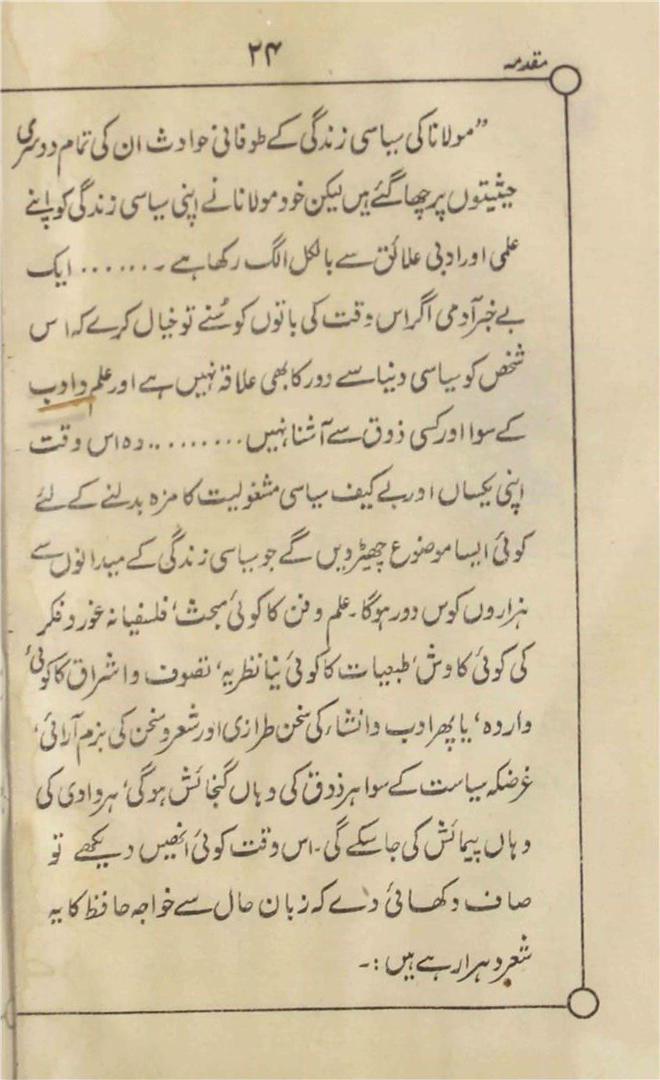 مقدمہ
۲۴
”مولانا کی سیاسی زندگی کے طوفانی حوادث ان کی تمام دوسری
حیثیتوں پر چھا گئے ہیں لیکن خود مولانا نے اپنی سیاسی زندگی کو اپنے
علمی اور ادبی علائق سے بالکل الگ رکھا ہے ۔ . . . . . . ایک
بے خبر آدمی اگر اس وقت کی باتوں کو سُنے تو خیال کرے کہ اس
شخص کو سیاسی دنیا سے دور کا بھی علاقہ نہیں ہے اور علم وادب
کے سوا اور کسی ذوق سے آشنا نہیں . . . . . . . . . وہ اس وقت
اپنی یکساں اور بے کیف سیاسی مشغولیت کا مزہ بدلنے کے لئے
کوئی ایسا موضوع چھیڑ دیں گے جو سیاسی زندگی کے میدانوں سے
ہزاروں کوس دور ہوگا۔ علم و فن کا کوئی مبحث‘ فلسفیانہ غور و فکر
کی کوئی کاوش‘ طبعیات کا کوئی نیا نظریہ‘ تصوف و اشراق کا کوئی
واردہ‘ یا پھر ادب و انشاء کی سخن طرازی اور شعر و سخن کی بزم آرائی‘
غرضکہ سیاست کے سوا ہر ذوق کی وہاں گنجائش ہوگی‘ ہر وادی کی
وہاں پیمائش کی جا سکے گی۔ اس وقت کوئی انھیں دیکھے تو
صاف دکھائی دے کہ زبان حال سے خواجہ حافظ کا یہ
شعر دہرا رہے ہیں :۔